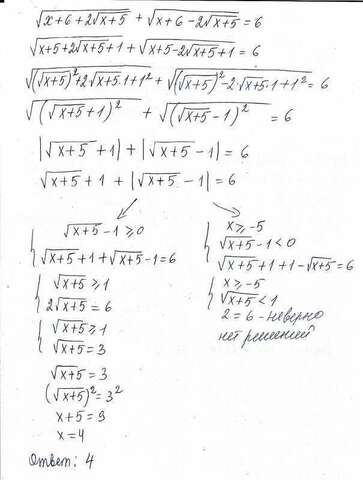 √(x+6+2√(x+5)) + √(x+6-2√(x+5)) = 6
√(x+5+2√(x+5)+1) + √(x+5-2√(x+5)+1) = 6
√((√(x+5))²+2√(x+5)·1+1²) + √((√(x+5))²-2·√(x+5)·1+1²) = 6
√((√(x+5)+1)²) + √((√(x+5)-1)²) = 6
|√(x+5)+1| + |√(x+5)-1| = 6
√(x+5)+1 + |√(x+5)-1| = 6
{ √(x+5)-1 ≥ 0
√(x+5)+1+√(x+5)-1=6
{ √(x+5) ≥ 1
2√(x+5) = 6
{ √(x+5) ≥ 1
√(x+5) = 3
√(x+5) = 3
(√(x+5))² = 3²
x+5 = 9
x = 4
{ x ≥ -5
√(x+5)-1 < 0
√(x+5)+1+1-√(x+5)=6
{ x ≥ -5
√(x+5) < 1
2 = 6 - неверно
нет решений
Ответ: 4